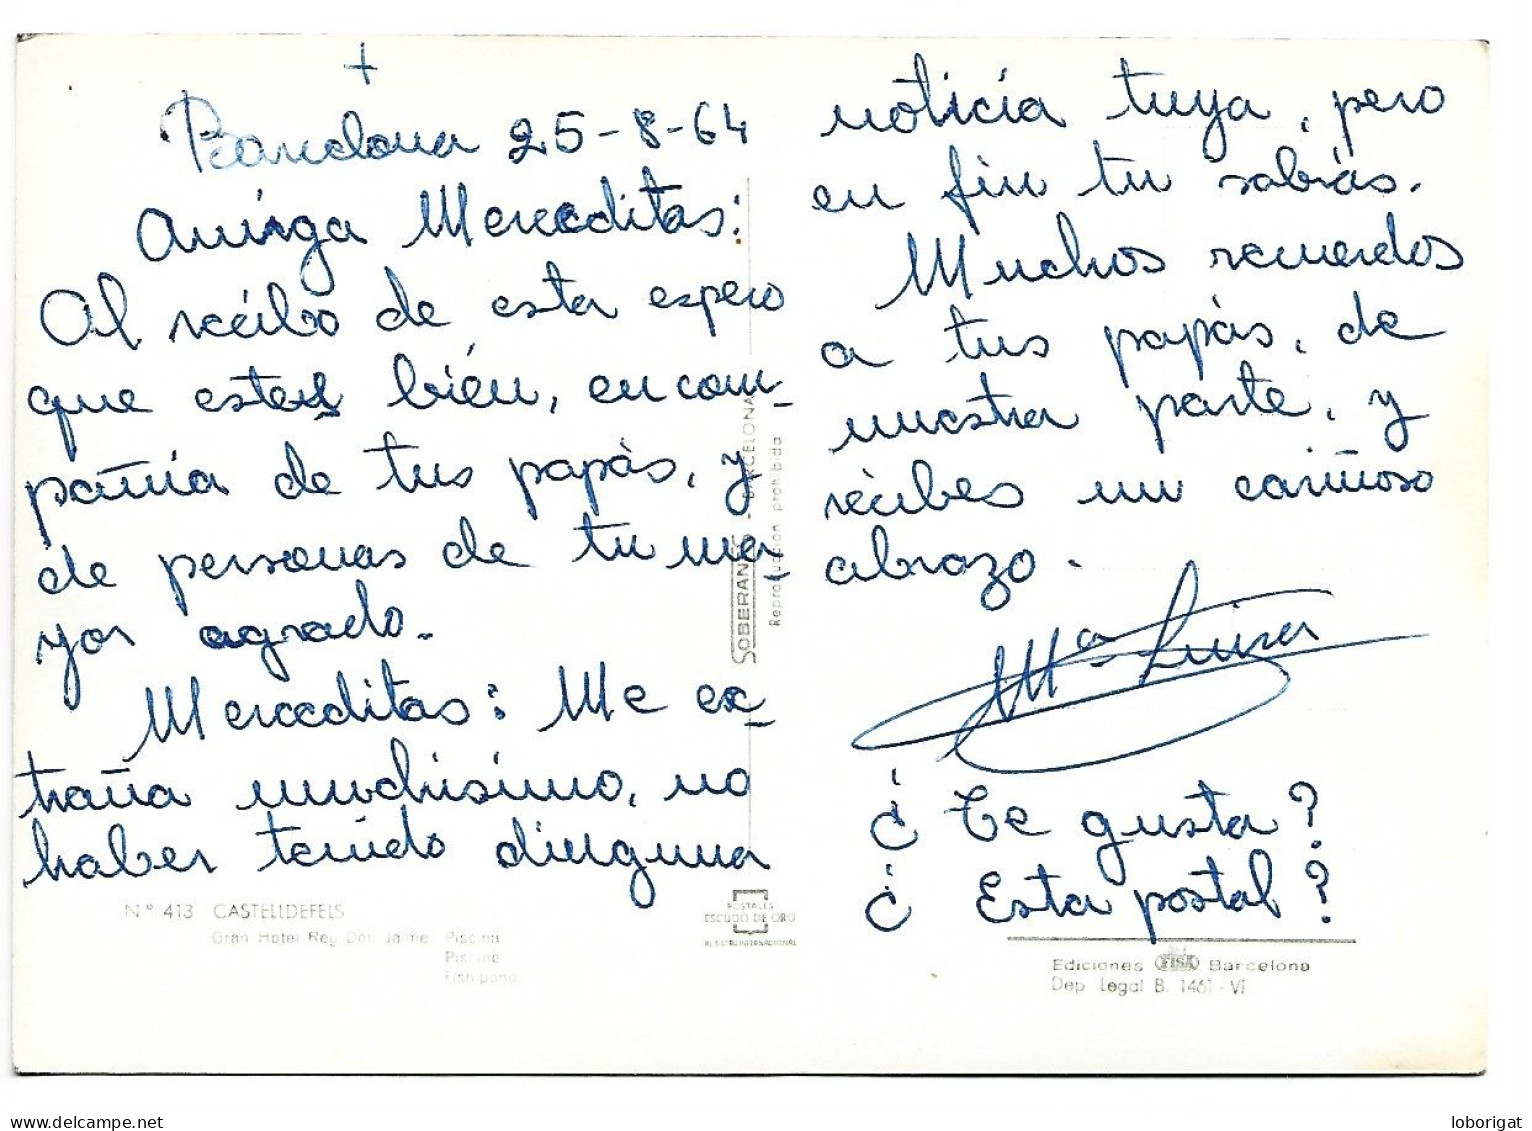 +
Barcelona 25-8-64
Amirga Merceditas:
Al recibo de esta espero
que esteis bién, en com-
pañia de tus papàs, y
de personas de tu ma-
yor agrado.
Mercediitas: Me ex-
traña muchisimo, no
haber tenido dinguna
noticía tuya, pero
en fin tu sabràs.
Muchos recuerdos
a tus papàs, de
nuestra parte, y
recibes un cariñoso
abrazo.
Mª Luisa
¿ Te gusta?
¿ Esta postal?
SOBERANAS - BARCELONA
Reproducción prohibida
Nº 413 CASTELLDEFELS
Gran Hotel Rey Don Jaime Piscina
Piscine
Fish-pond
POSTALES
ESCUDO DE ORO
REGISTRO INTERNACIONAL
Ediciones FISA Barcelona
Dep Legal B. 1461 - VI
loborigat